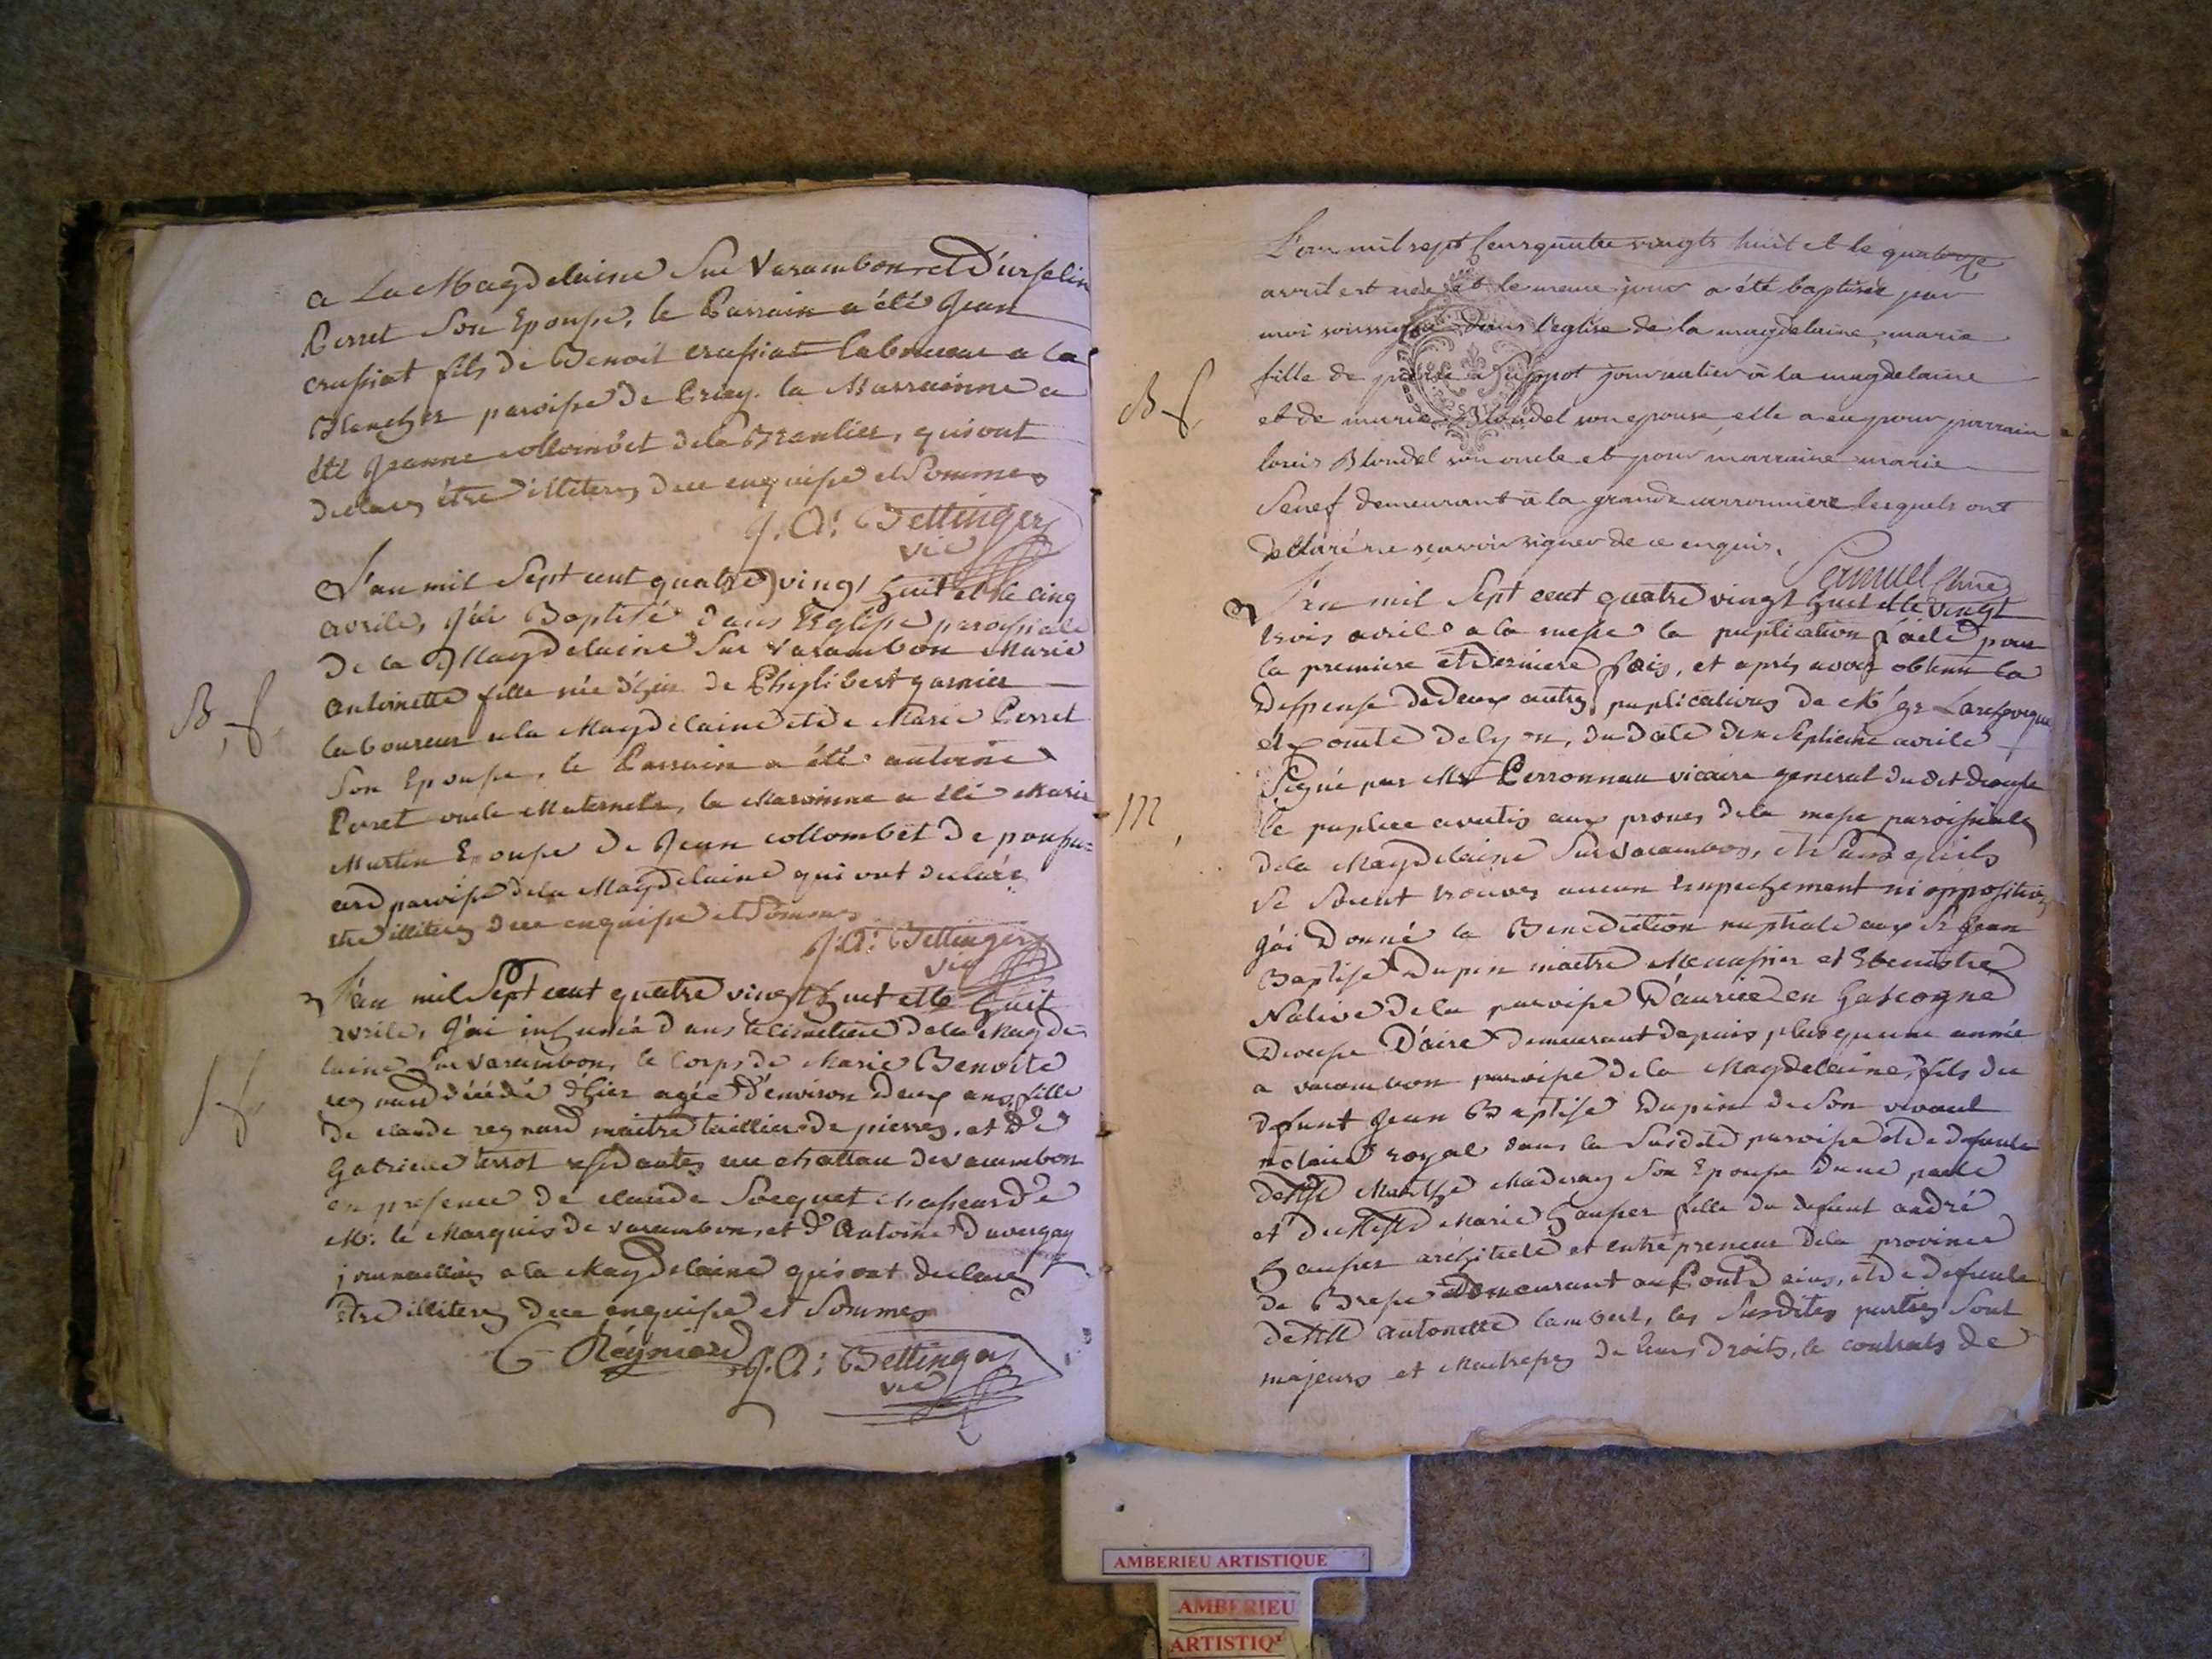 a La Magdelaine Sur Varambon et D'urseline
Perret Son Epouse, le Parrain a été Jean
crussiat fils de Benoit crussiat laboureur a la
paroisse de Priay. la Marrainne a
été Jeanne collombet dela qui ont
declarés être illiteres de ce enquise et Sommes
J. A: Bettinger
vic
L'an mil Sept cent quatre vingt huit et le cinq
avrile, J'ai Baptisé dans l'Eglise paroissiale
De la Magdelaine Sur Varambon Marie
antoinette fille née d'hier de Philibert garnier
laboureur a la Magdelaine et de Marie Perret
Son Epouse, le Parrain a été antoine
Perret oncle Maternele, la Marainne a été Marie
Martin Epouse de Jean collombet de
paroisse dela Magdelaine qui ont declarés
être illiteres de ce enquise et Sommes
B. f.
J. A: Bettinger
vic
L'an mil Sept cent quatre vingt huit et le huit
avrile, J'ai inhumé dans le cimetiere dela Magde
laine Sur varambon, le Corps de Marie Benoite
regnard décédé d'hier agée d'environ deux ans, fille
de claude regnard maitre taillier de pierres, et de
Gabrielle terrot residantes au chattau de varambon
en presence de claude Socquet chasseur de
Mr. le Marquis de varambon, et d'Antoine
journaillier a la Magdelaine qui ont declarés
être illiteres de ce enquise et Sommes
C Réyniard J. A: Bettinger
vic
L'an mil sept cent quatre vingts huit et le quatorze
avril est née et le meme jour a été baptisée par
moi soussigné dans l'eglise de la magdelaine, marie
fille de pierre journalier à la magdelaine
et de marie Blondel son epouse, elle a eu pour parrain
louis Blondel son oncle et pour marraine marie
Senef demeurant à la grande lesquels ont
declaré ne sçavoir signer de ce enquis.
B f.
L'an mil Sept cent quatre vingt huit et le vingt
trois avril a la messe la puplication faite pour
la premiere et derniere fois, et aprés avoir obtenu la
dispense de deux autres puplications de M'gr Larchevèque
et comte de lyon, du date du Septieme avrile
Signé par Mr Perronneau vicaire general du dit diocese
le puplice avertis aux prones dela messe paroissiale
dela Magdelaine Sur varambon, et Sans qu'ils
Se Soient trouvés aucun Empechement ni opposition
J'ai Donné la Benediction nuptiale aux Sr Jean
Baptise Dupin maitre Menussier et Ebeniste
Native de la paroisse en Gascogne
Diocese D'aire demeurant depuis plus qu'une année
a varambon paroisse dela Magdelaine, fils du
defunt Jean Baptise Dupin de Son vivant
notaire royal dans la Susdite paroisse et de defunte
Marthe Son Epouse d'une parte
et de Marie fille du defunt andré
architecte et entrepreneur dela province
de Bresse demeurant au Pont d'ains, et de defunte
antonette lambert, les Susdites parties Sont
majeurs et Maitresses de leurs Droits, le contrats de
M,